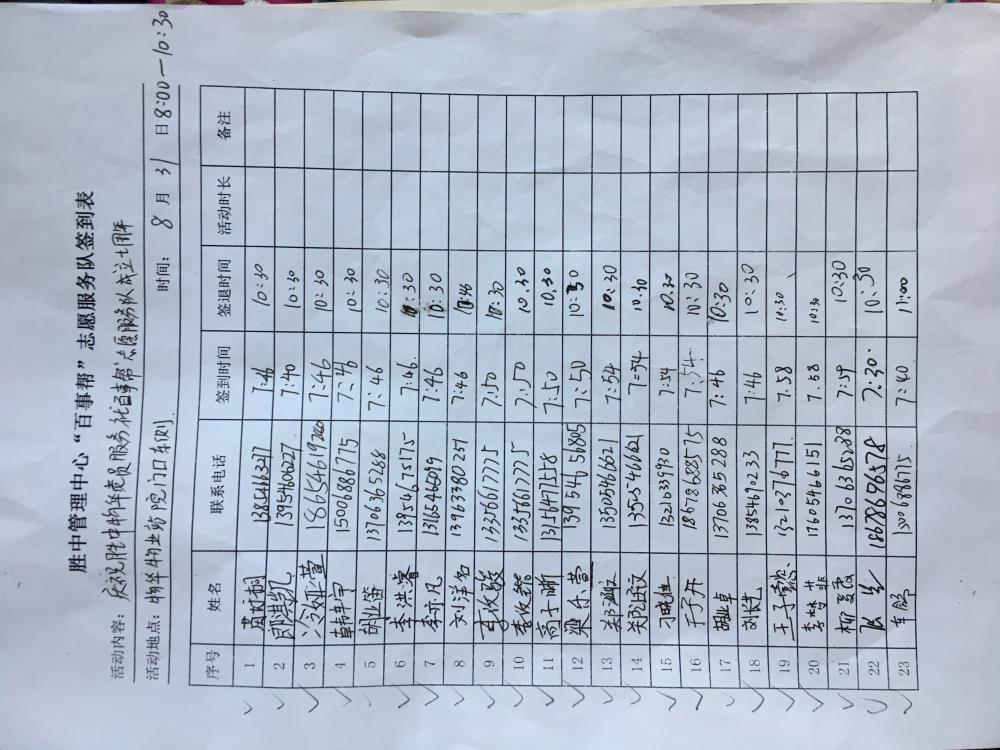 胜中管理中心“百事帮”志愿服务队签到表
活动内容：庆祝胜中物华党员服务代百事帮志愿服务队成立七周年
活动地点：物华物业幼院门口东侧 时间：8月31日8:00—10:30
序号 姓名 联系电话 签到时间 签退时间 活动时长 备注
1 7:46 10:30
2 邵洪凯 13954606227 7:40 10:30
3 冷娅萱 18654619260 7:46 10:30
4 韩丰宇 15006886775 7:46 10:30
5 胡业笛 13706365288 7:46 10:30
6 李洪睿 13954675175 7:46 10:30
7 李亦凡 7:46 10:30
8 刘洋名 13963380257 7:46
9 李牧骏 13356617775 7:50 10:30
10 李牧 13356617775 7:50 10.30
11 高子晰 13156471558 7:50 10.30
12 梁乐萱 13954656805 7:50 10:30
13 郑涵 13505466621 7:54 10:30
14 郑 13505466621 7:54 10.30
15 刁 13216339930 7:54 10.30
16 于子开 18678688575 7:54 10:30
17 胡业卓 13706365288 7:46 10:30
18 刘 13854670233 7:46 10:30
19 王子 13210376777 7.58 10:30
20 李梦菲 17605466151 7:58 10:30
21 柳夏霞 13706365288 7:59 10:30
22 18678696578 7:30 10:30
23 车 15006886775 7:40 11:00